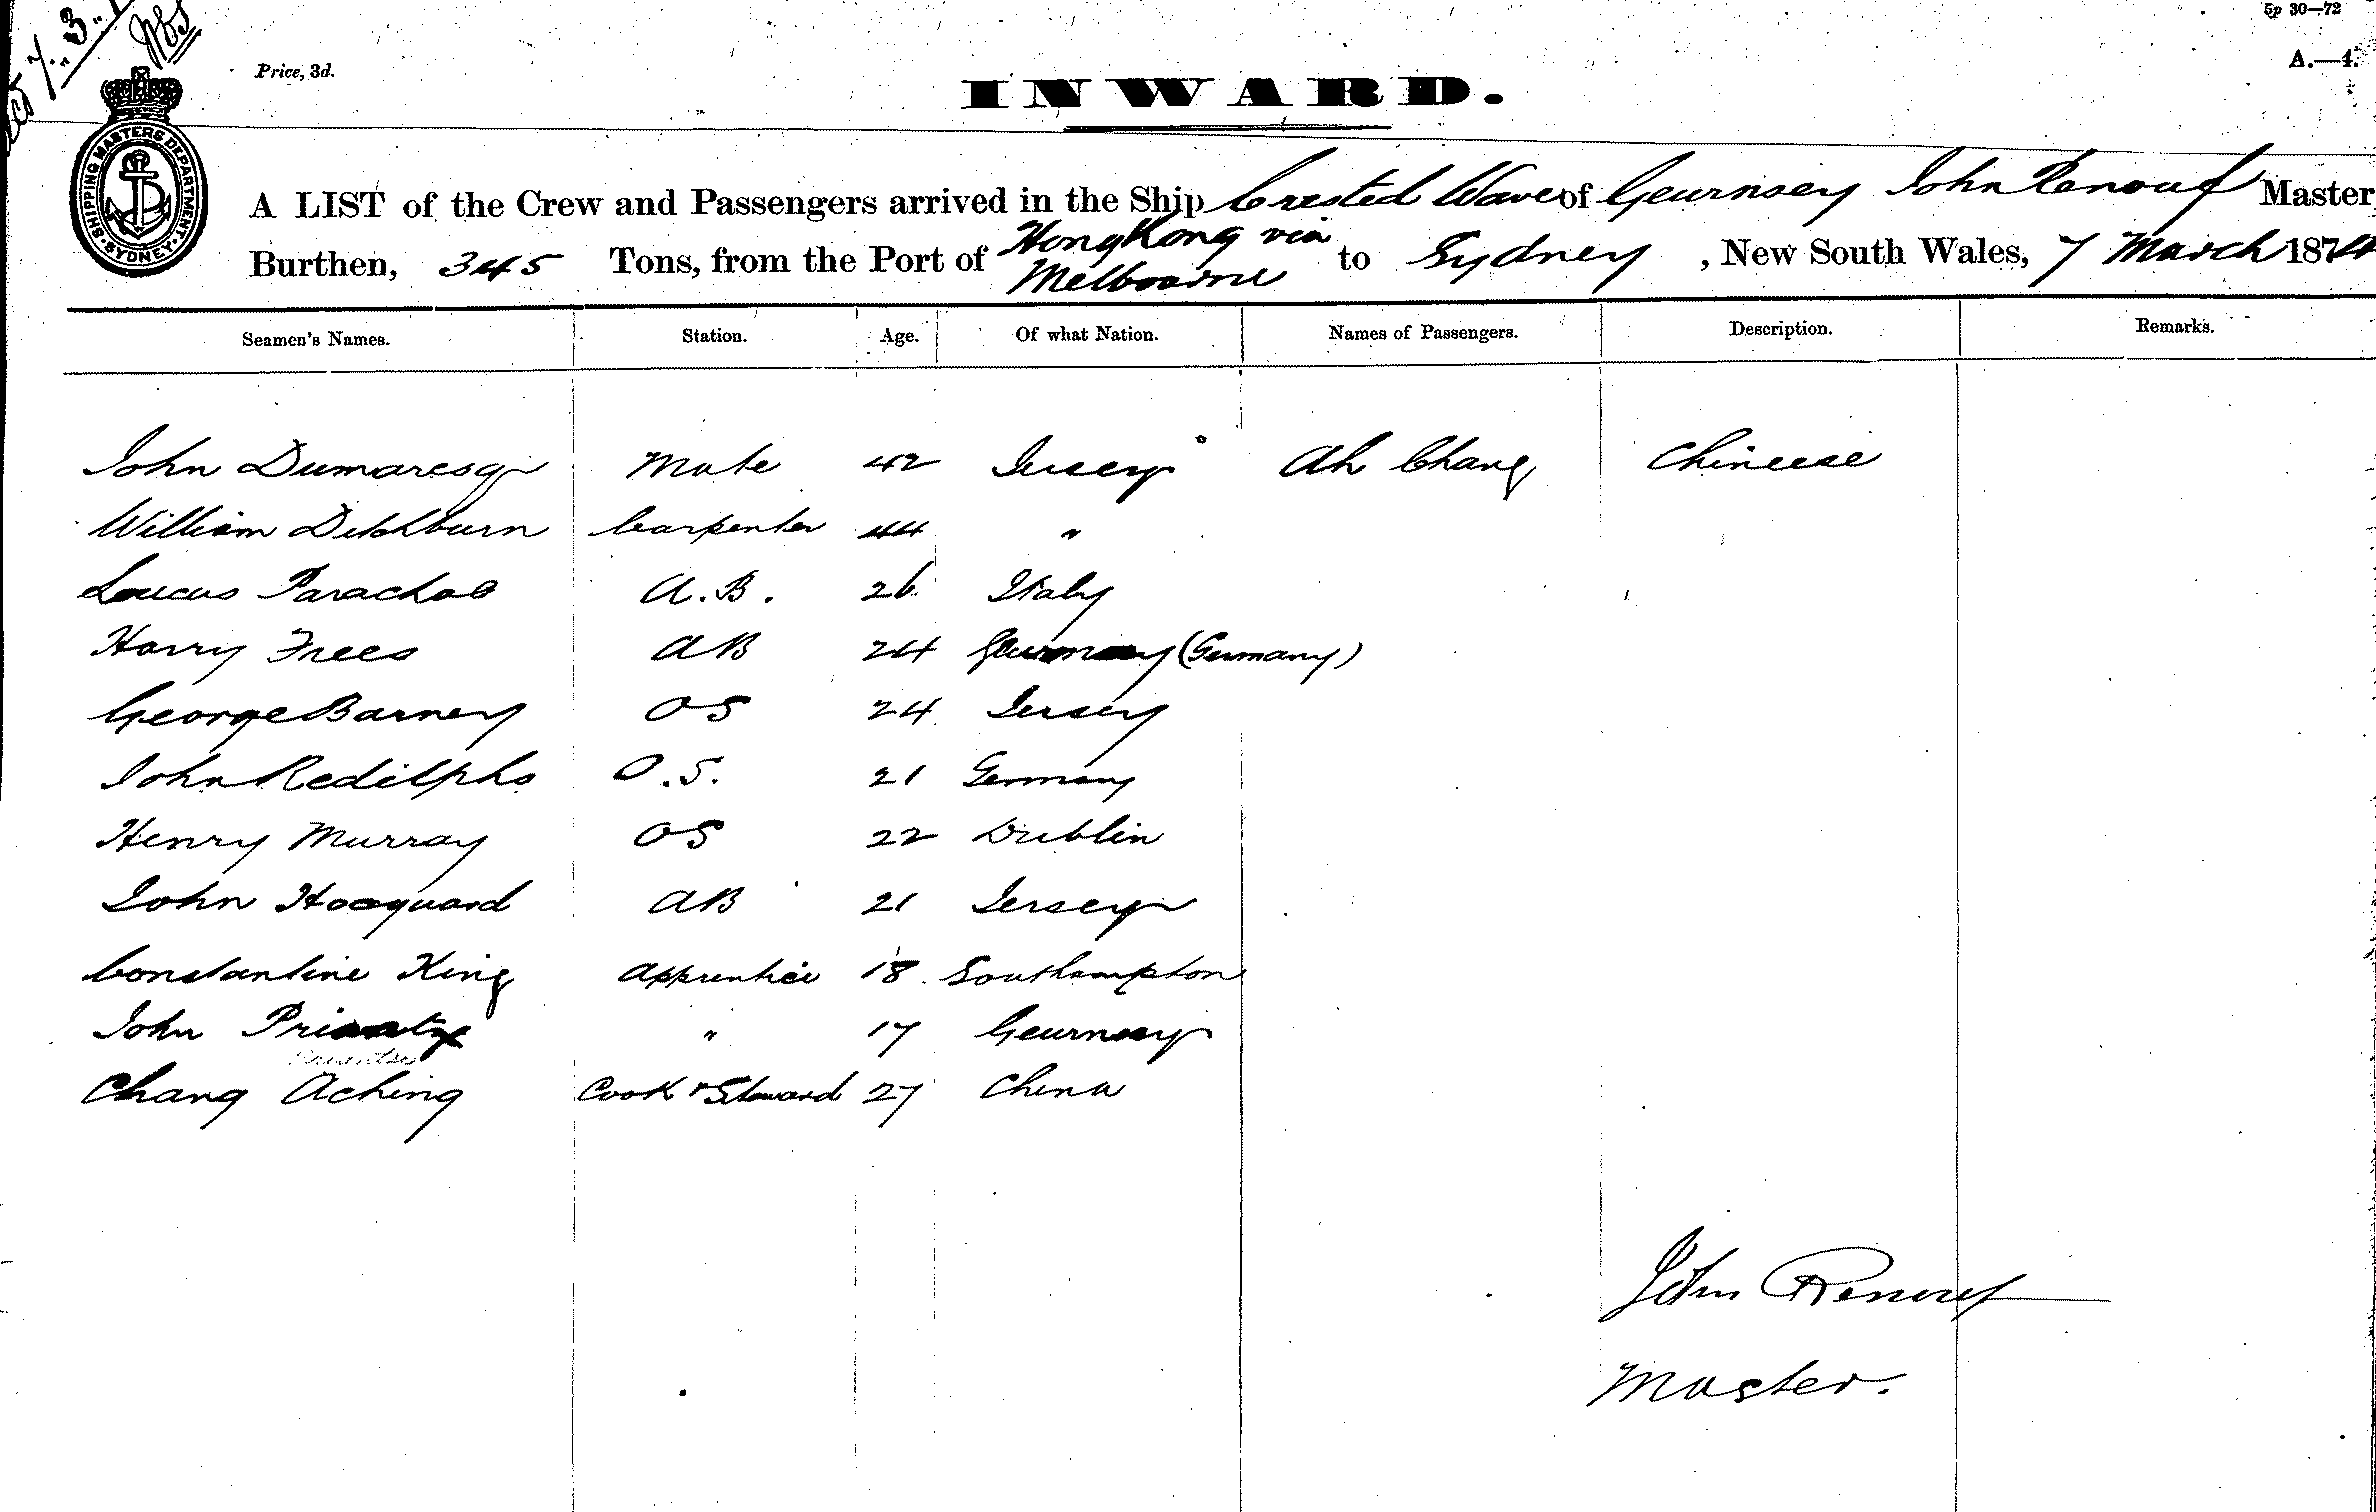 7.3.
5p 30—72
Price, 3d.
A.—4.
INWARD.
SHIPPING MASTERS DEPARTMENT SYDNEY
A LIST of the Crew and Passengers arrived in the Ship Crested Wave of Geurnsey John Renouf Master
Burthen, 345 Tons, from the Port of HongKong via Melbourne to Sydney, New South Wales, 7 March 1874
Seamen's Names. Station. Age. Of what Nation. Names of Passengers. Description. Remarks.
John Dumaresq Mate 42 Jersey Ah Chang Chineese
William Ditchburn Carpenter 44 "
Loucus A.B. 26 Italy
Harry Frees AB 24 (Germany)
George Barney OS 24 Jersey
John Redilphs O.S. 21 Germany
Henry Murray OS 22 Dublin
John Hocquard AB 21 Jersey
Constantine King Apprentice 18 Southampton
John " 17 Geurnsey
Chang Aching Cook & Steward 27 China
John Renouf
Master.